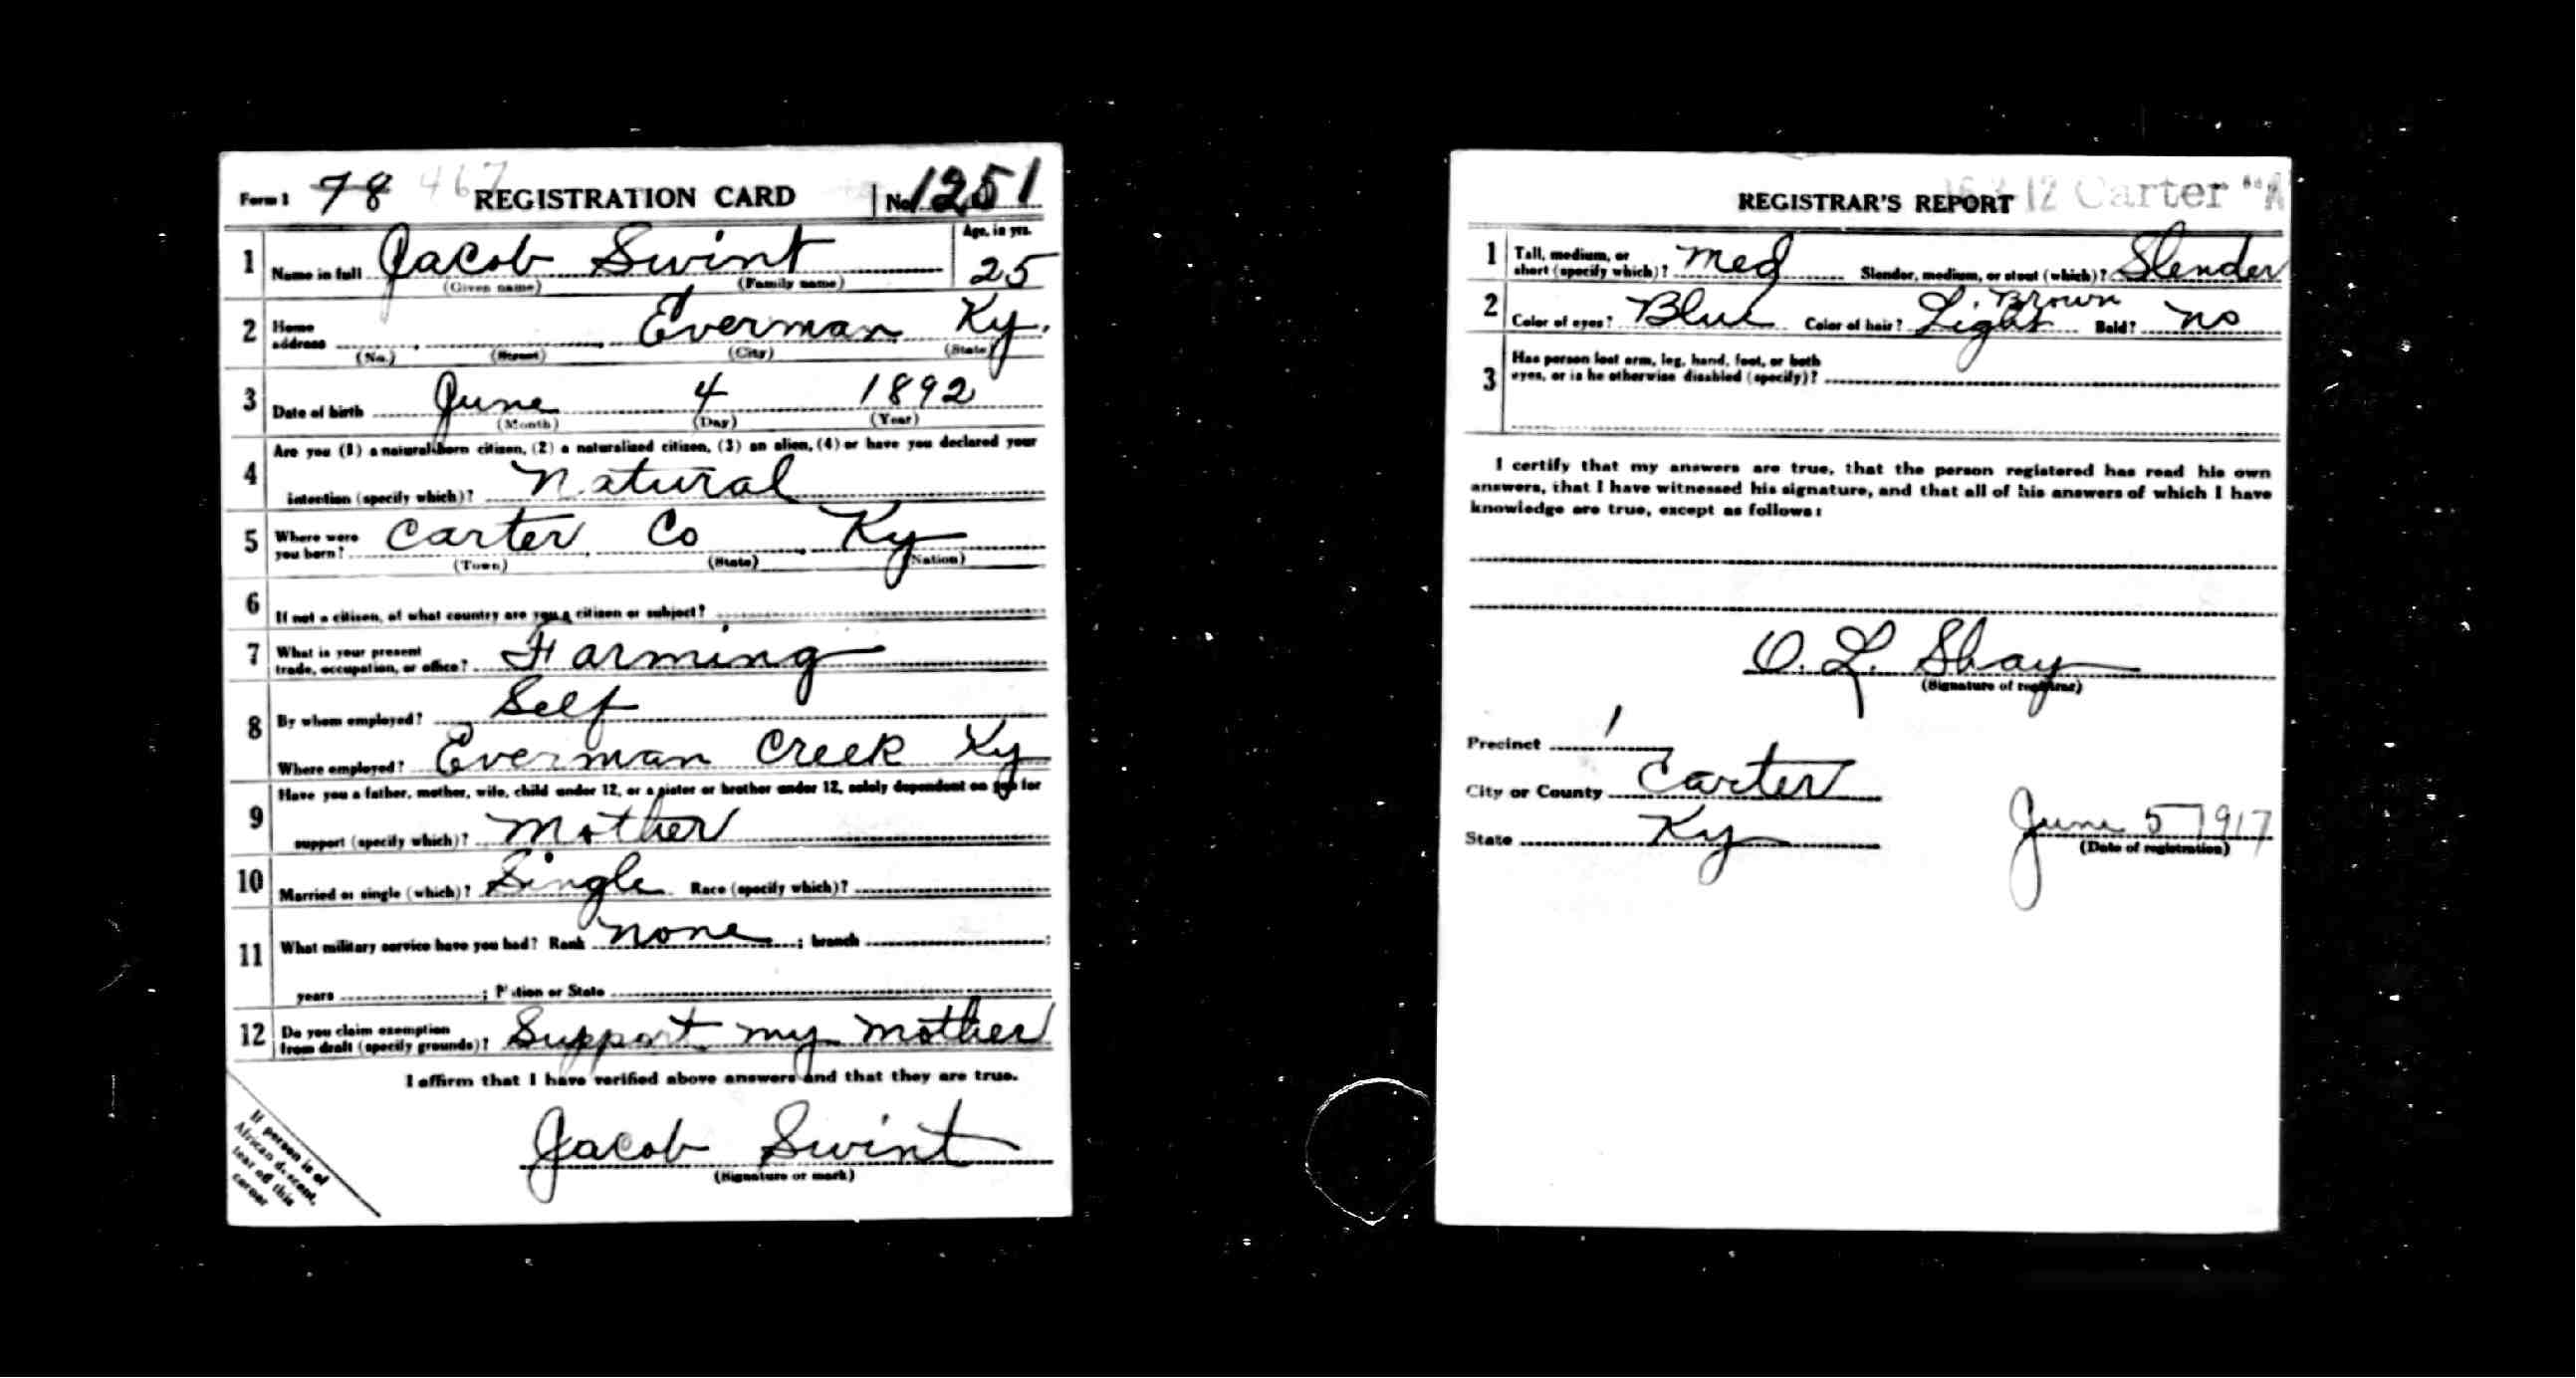 Form 1 78 467 REGISTRATION CARD No. 1251
1 Name in full Jacob Swint Age, in yrs. 25
(Given name) (Family name)
2 Home address Everman Ky.
(No.) (Street) (City) (State)
3 Date of birth June 4 1892
(Month) (Day) (Year)
4 Are you (1) a natural-born citizen, (2) a naturalized citizen, (3) an alien, (4) or have you declared your
intention (specify which)? Natural
5 Where were you born? Carter Co Ky
(Town) (State) (Nation)
6 If not a citizen, of what country are you a citizen or subject?
7 What is your present trade, occupation, or office? Farming
8 By whom employed? Self
Where employed? Everman Creek Ky
9 Have you a father, mother, wife, child under 12, or a sister or brother under 12, solely dependent on you for
support (specify which)? Mother
10 Married or single (which)? Single Race (specify which)?
11 What military service have you had? Rank None ; branch ;
years ; Nation or State
12 Do you claim exemption from draft (specify grounds)? Support my mother
I affirm that I have verified above answers and that they are true.
Jacob Swint
(Signature or mark)
If person is of
African descent,
tear off this
corner
REGISTRAR'S REPORT 12 Carter "A
1 Tall, medium, or short (specify which)? Med Slender, medium, or stout (which)? Slender
2 Color of eyes? Blue Color of hair? Light Brown Bald? No
3 Has person lost arm, leg, hand, foot, or both
eyes, or is he otherwise disabled (specify)?
I certify that my answers are true, that the person registered has read his own
answers, that I have witnessed his signature, and that all of his answers of which I have
knowledge are true, except as follows:
O. L. Shay
(Signature of registrar)
Precinct 1
City or County Carter
State Ky June 5 1917
(Date of registration)